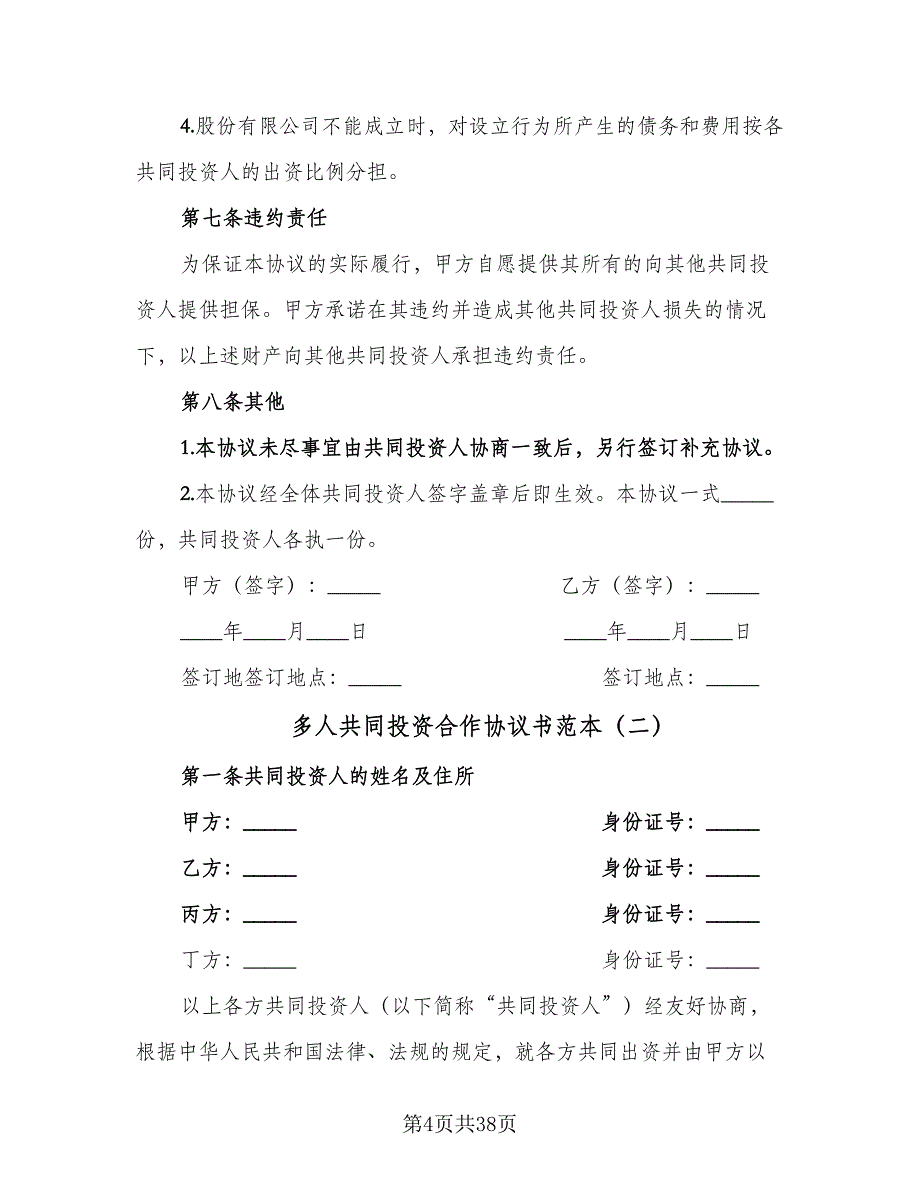 4.股份有限公司不能成立时，对设立行为所产生的债务和费用按各
共同投资人的出资比例分担。
第七条违约责任
为保证本协议的实际履行，甲方自愿提供其所有的向其他共同投
资人提供担保。甲方承诺在其违约并造成其他共同投资人损失的情况
下，以上述财产向其他共同投资人承担违约责任。
第八条其他
1.本协议未尽事宜由共同投资人协商一致后，另行签订补充协议。
2.本协议经全体共同投资人签字盖章后即生效。本协议一式_____
份，共同投资人各执一份。
甲方（签字）：_____ 乙方（签字）：_____
____年____月____日 ____年____月____日
签订地签订地点：_____ 签订地点：_____
多人共同投资合作协议书范本（二）
第一条共同投资人的姓名及住所
甲方：_____ 身份证号：_____
乙方：_____ 身份证号：_____
丙方：_____ 身份证号：_____
丁方：_____ 身份证号：_____
以上各方共同投资人（以下简称“共同投资人”）经友好协商，
根据中华人民共和国法律、法规的规定，就各方共同出资并由甲方以
第4页共38页